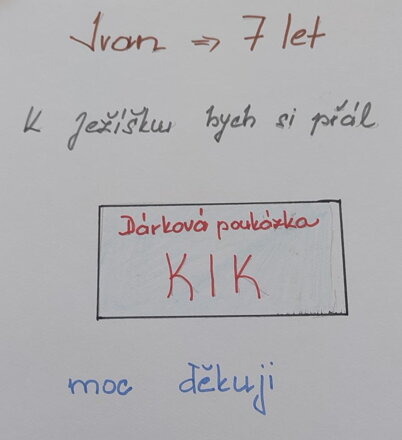 Ivan => 7 let
K Ježíšku bych si přál
Dárková poukázka
KIK
moc děkuji